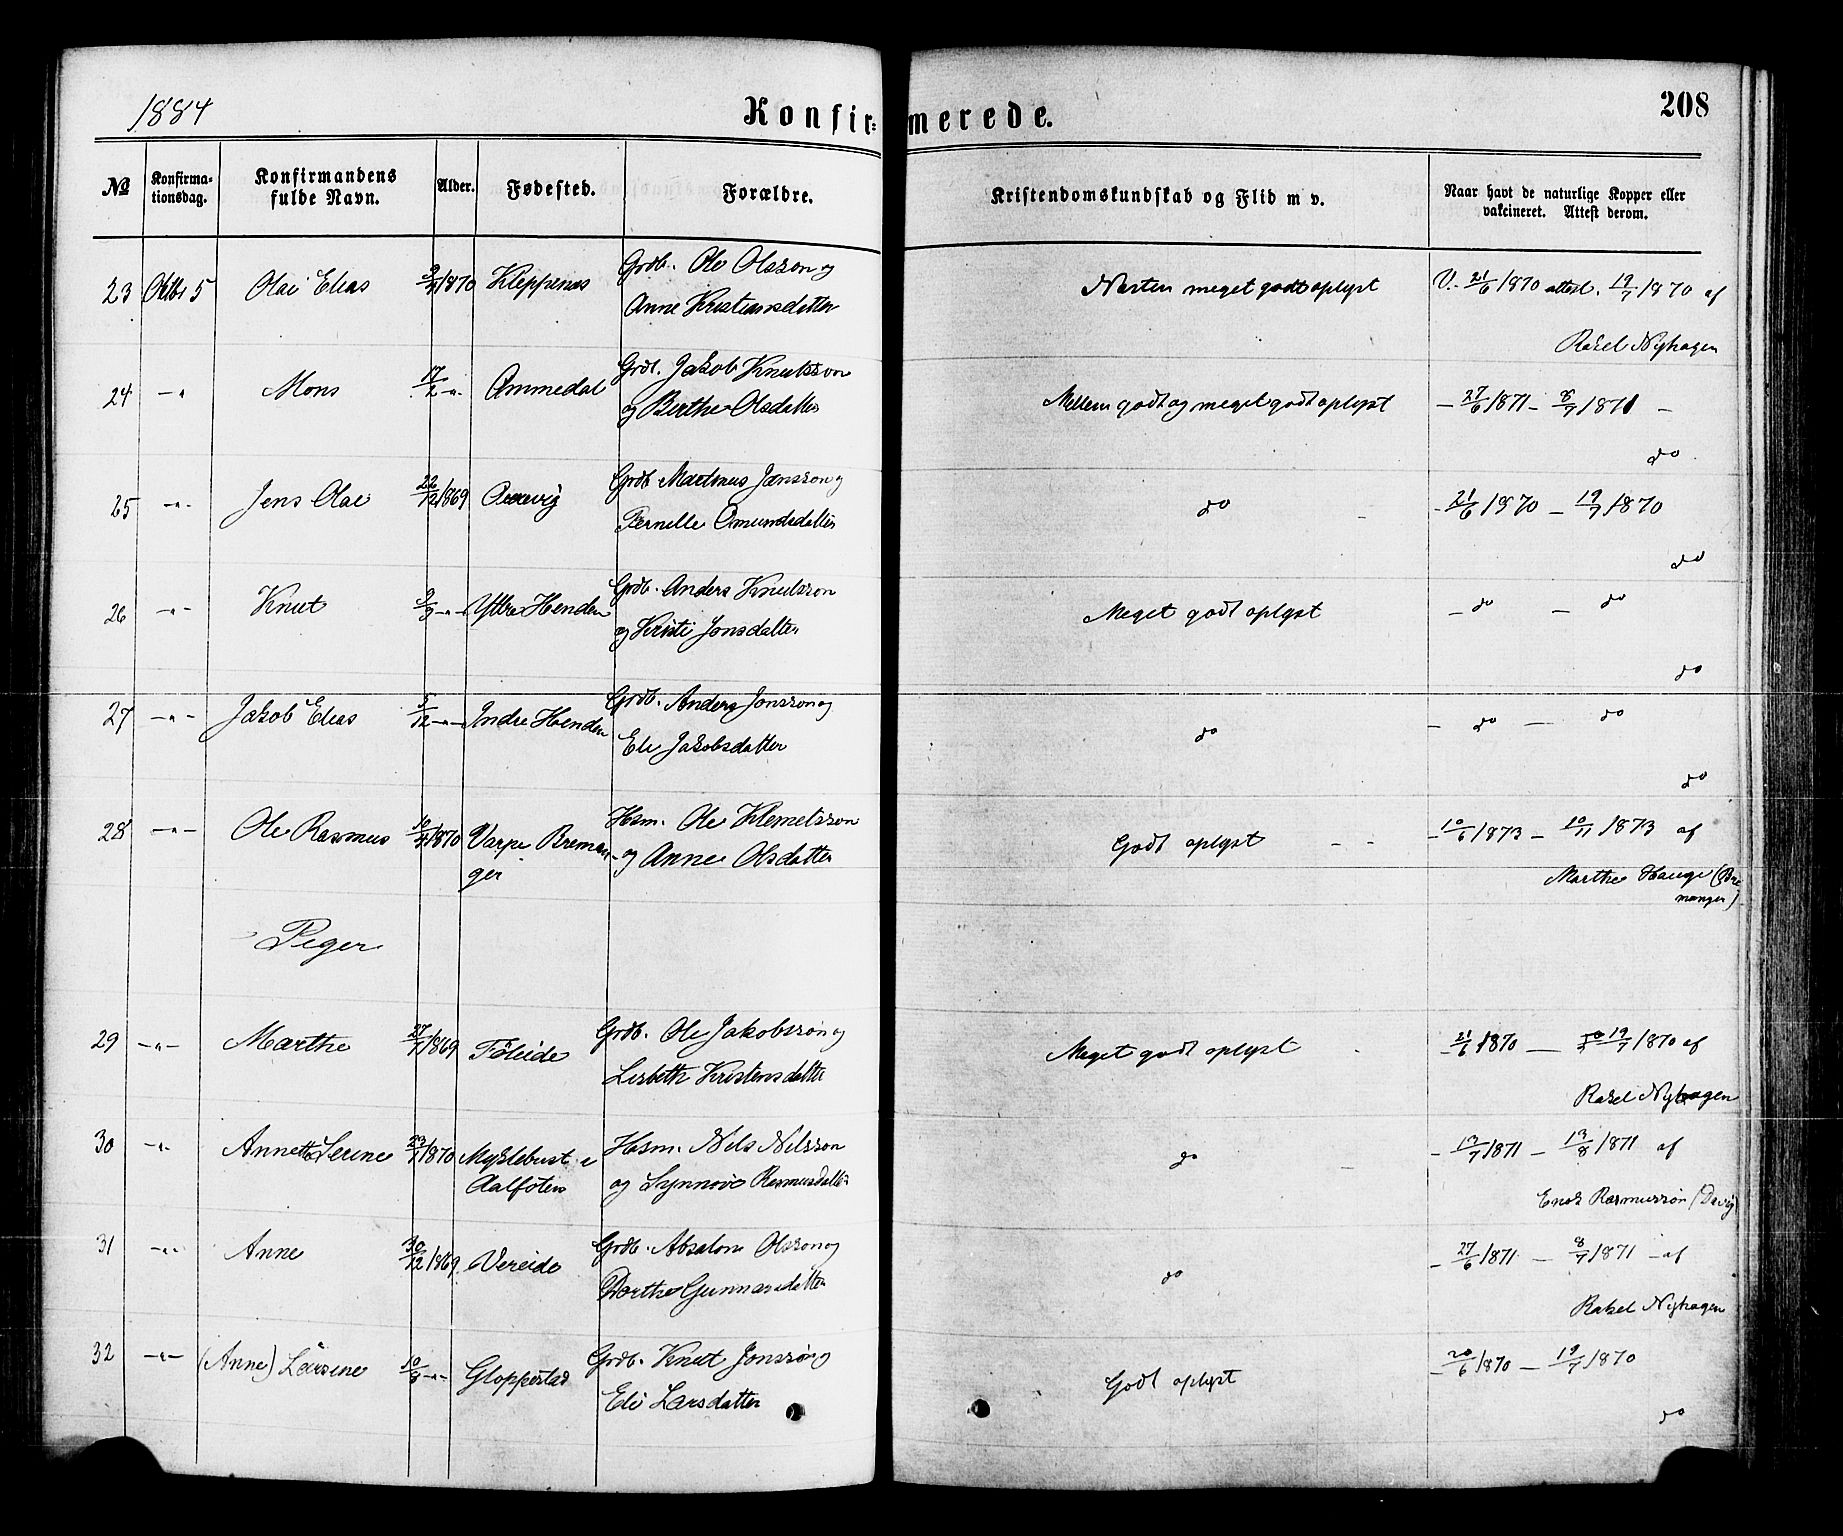 1884
Konfirmerede.
208
№ Konfirmationsdag. Konfirmandens fulde Navn. Alder. Fødested. Forældre. Kristendomskundskab og Flid m v. Naar havt de naturlige Kopper eller vakcineret. Attest derom.
23 Oktbr 5 Olai Elias 1870 Kleppenes Grdb. Ole Olsson og Nesten meget godt oplyst V. 21/6 1870 attest. 19/7 1870 af
Anne Kristiansdatter
Rakel Nyhagen
24 -"- Mons 17/2 -"- Ommedal Grdb. Jakob Knutsson Mellem godt og meget godt oplyst - 27/6 1871 - 8/7 1871 -
og Berthe Olsdatter
do
25 -"- Jens Olai 22/12 1869 Grdb Martinus Jansson og do - 21/6 1870 - 19/7 1870
Pernelle Omundsdatter
do
26 -"- Knut -"- Yttre Henden Grdb. Anders Knutsson Meget godt oplyst - do - do
og Kristi Jonsdatter
do
27 -"- Jakob Elias 5/12 -"- Indre Henden Grdb. Anders Jonsson og do - do - do
Eli Jakobsdatter
do
28 -"- Ole Rasmus 10/4 1870 Varpe Breman- Hsm. Ole Klemetsson Godt oplyst - - - 10/6 1873 - 10/11 1873 af
ger og Anne Olsdatter
Marthe Hauge (Bre
manger)
Piger
29 -"- Marthe 27/7 1869 Føleide Grdb. Ole Jakobsson og Meget godt oplyst - 21/6 1870 - 19/7 1870 af
Lisbeth Kristensdatter
Rakel Nyhagen
30 -"- Annette Serine 23/7 1870 Myklebust i Hsm. Nils Nilsson do - 13/7 1871 - 13/8 1871 af
Aalfoten og Synnøve Rasmusdatter
Enok Rasmusson (Davig)
31 -"- Anne 30/12 1869 Vereide Grdb. Absalom Olsson og do - 27/6 1871 - 8/7 1871 - af
Dorthe Gunnarsdatter
Rakel Nyhagen
32 -"- (Anne) Larsine -"- Gloppestad Grdb. Knut Jonsson og Godt oplyst - 20/6 1870 - 19/7 1870
Eli Larsdatter
do